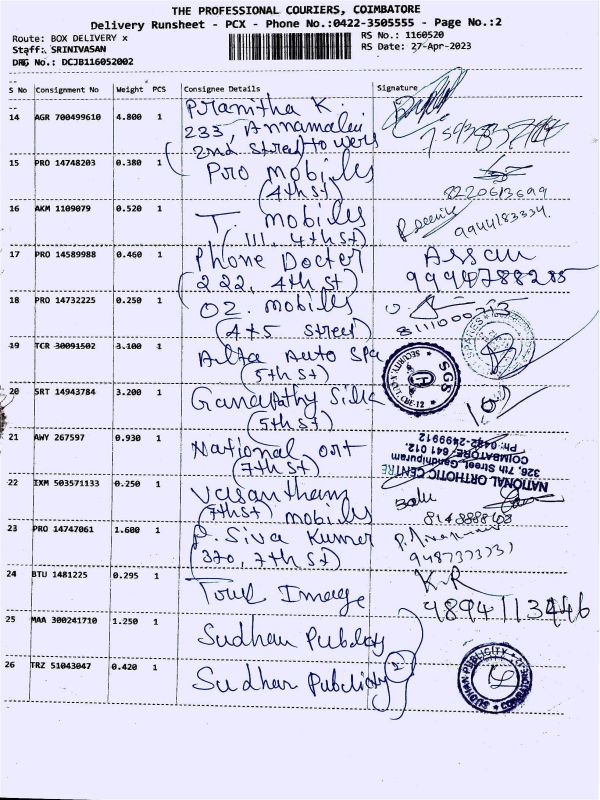 THE PROFESSIONAL COURIERS, COIMBATORE
Delivery Runsheet - PCX - Phone No.:0422-3505555 - Page No.:2
Route: BOX DELIVERY x
RS No.: 1160520
Staff: SRINIVASAN
RS Date: 27-Apr-2023
DRG No.: DCJB116052002
S No Consignment No Weight PCS Consignee Details Signature
14 AGR 700499610 4.800 1 Pranitha K.
233, Annamalai
(2nd Street towers
15 PRO 14748203 0.380 1 Pro mobiles
(4th st)
8220613699
16 AKM 1109079 0.520 1 T. mobiles
9944183334
(111, 4th st)
17 PRO 14589988 0.460 1 Phone Docter
(222, 4th st)
18 PRO 14732225 0.250 1 OZ. mobiles
(4th street)
19 TCR 30091502 3.100 1 Alfa Auto Spa
(5th st)
SGS
20 SRT 14943784 3.200 1 Ganapathy Silk
(5th st)
21 AWY 267597 0.930 1 National ort
(7th st)
NATIONAL ORTHOTIC CENTRE
326, 7th Street, Gandhipuram
COIMBATORE - 641 012.
Ph: 0422-2499912
22 IXM 503571133 0.250 1 Vasantham
(7th st) mobiles
Balu
23 PRO 14747061 1.600 1 P. Siva Kumar
(370, 7th st)
24 BTU 1481225 0.295 1 Tour Image
K.R
25 MAA 300241710 1.250 1 Sudhan Publicity
26 TRZ 51043047 0.420 1 Sudhan Publicity
2
SUDHAN PUBLICITY